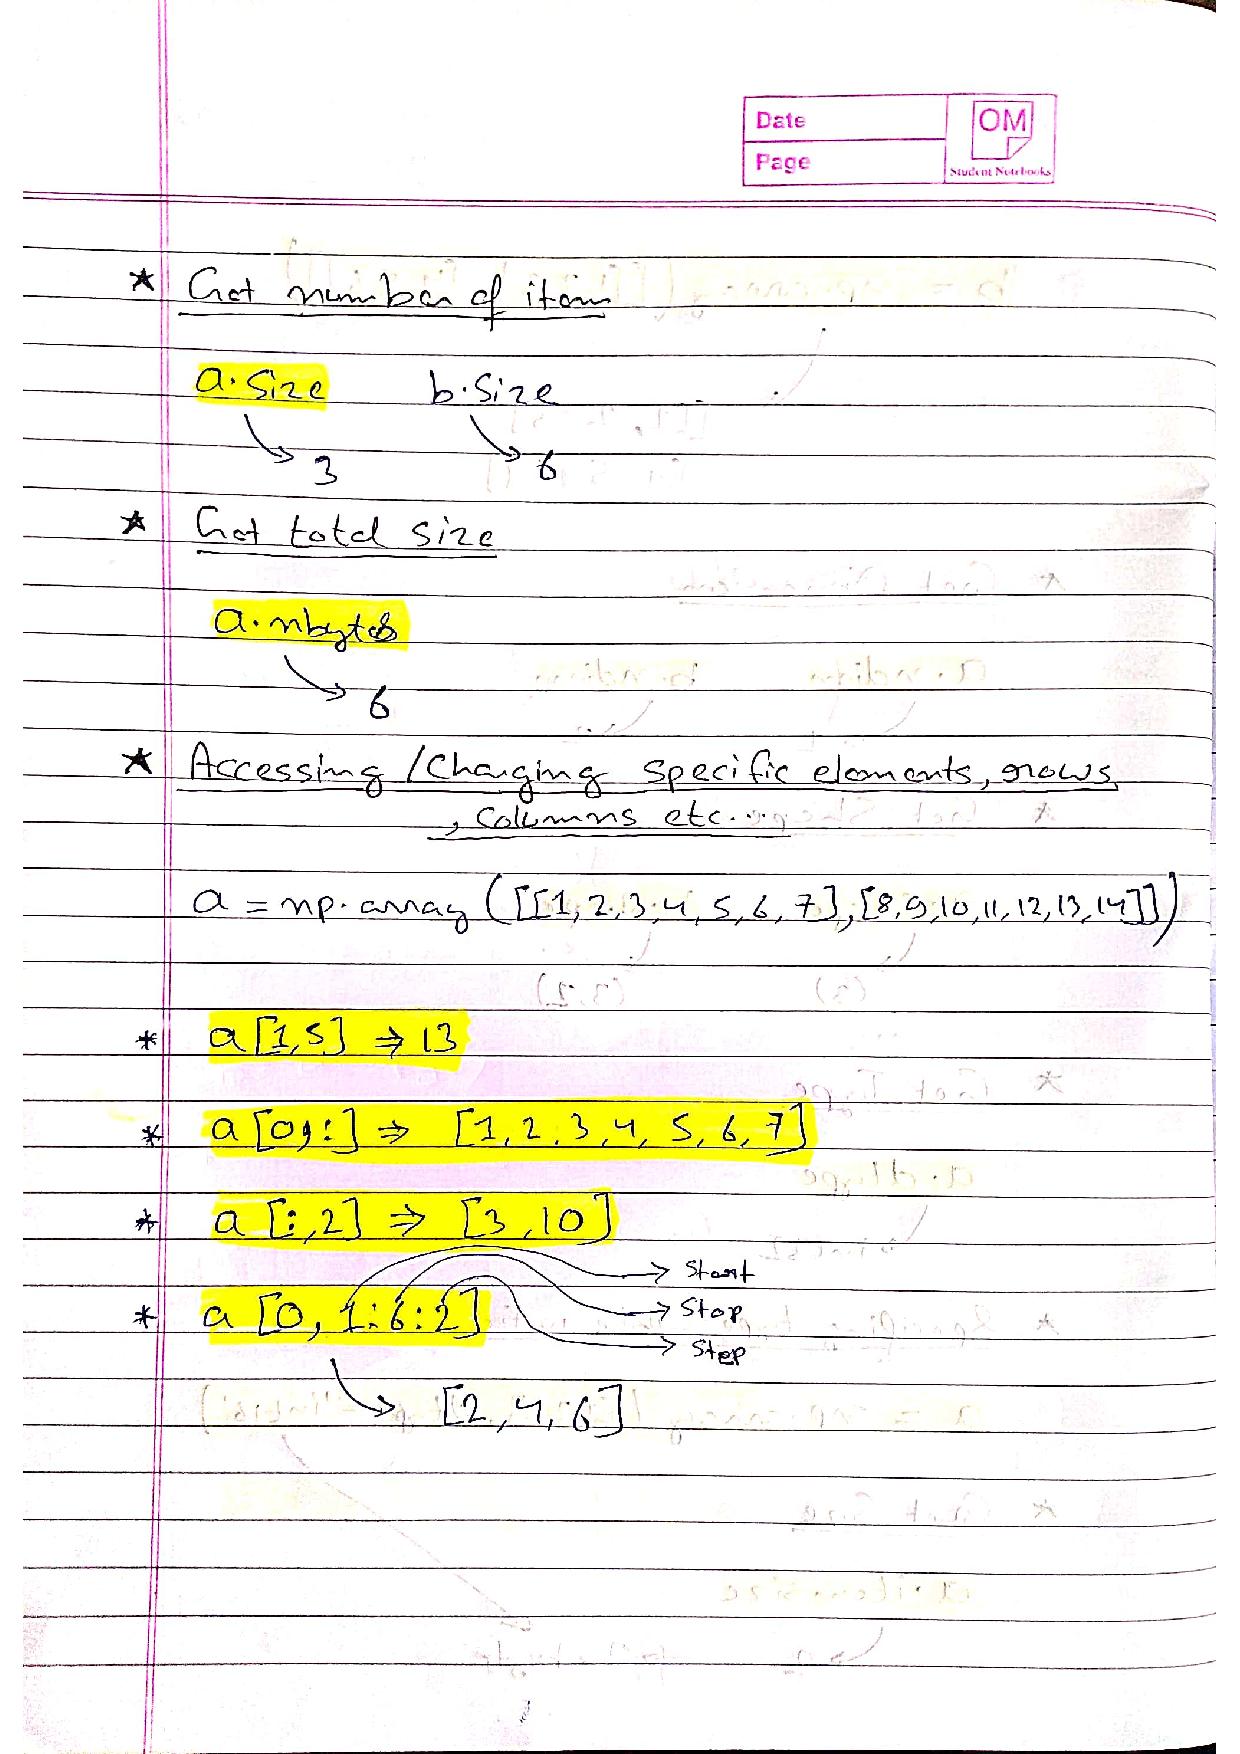 Date
Page
OM
Student Notebooks
★ Get number of item
a.size b.size
3 6
★ Get total size
a.nbytes
6
★ Accessing / Changing specific elements, rows
, Columns etc...
a = np.array([[1,2,3,4,5,6,7],[8,9,10,11,12,13,14]])
* a[1,5] ⇒ 13
* a[0,:] ⇒ [1,2,3,4,5,6,7]
* a[:,2] ⇒ [3,10]
→ Start
* a[0,1:6:2] → Stop
→ Step
[2,4,6]